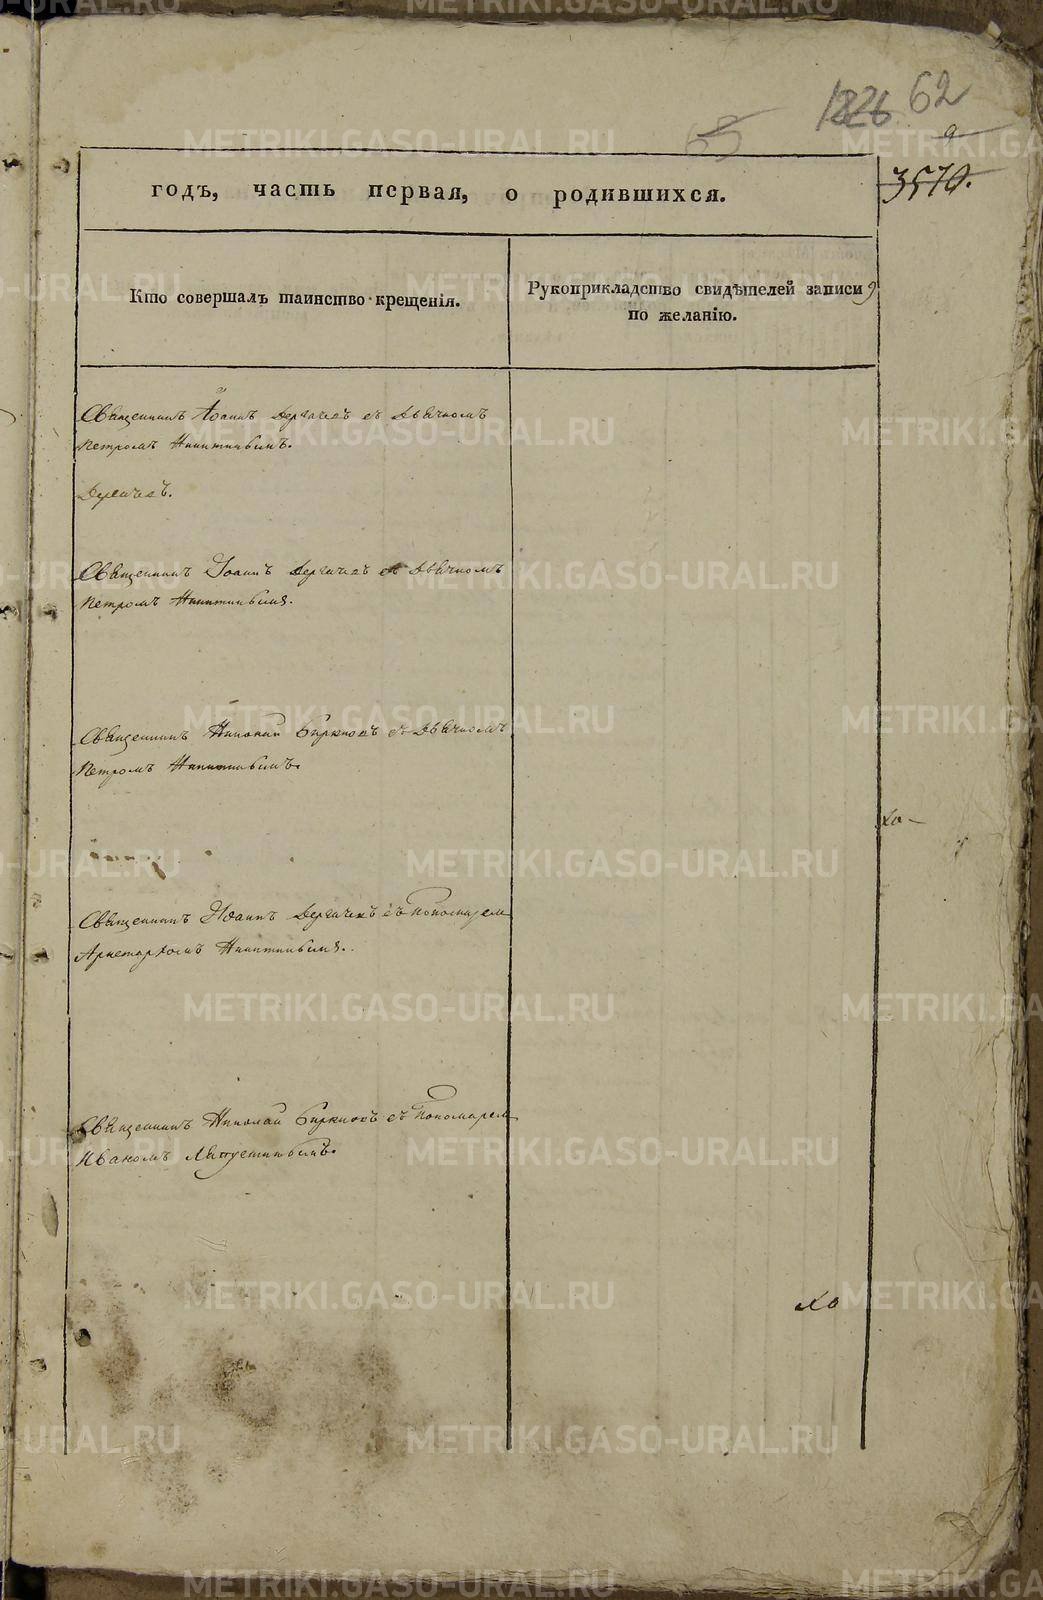 1826 62
63
9
3570.
годъ, часть первая, о родившихся.
Кто совершалъ таинство крещенія.
Рукоприкладство свидѣтелей записи
по желанію.
9
Священникъ Іоаннъ Дергачевъ съ дьячкомъ
Петромъ Никитинымъ.
Священникъ Іоаннъ Дергачевъ съ дьячкомъ
Петромъ Никитинымъ.
Священникъ Николай Бирюковъ съ дьячкомъ
Петромъ Никитинымъ.
Священникъ Іоаннъ Дергачевъ съ пономарем
Аристархомъ Никитинымъ.
Священникъ Николай Бирюковъ съ пономарем
Иваномъ Лапустинымъ.
METRIKI.GASO-URAL.RU